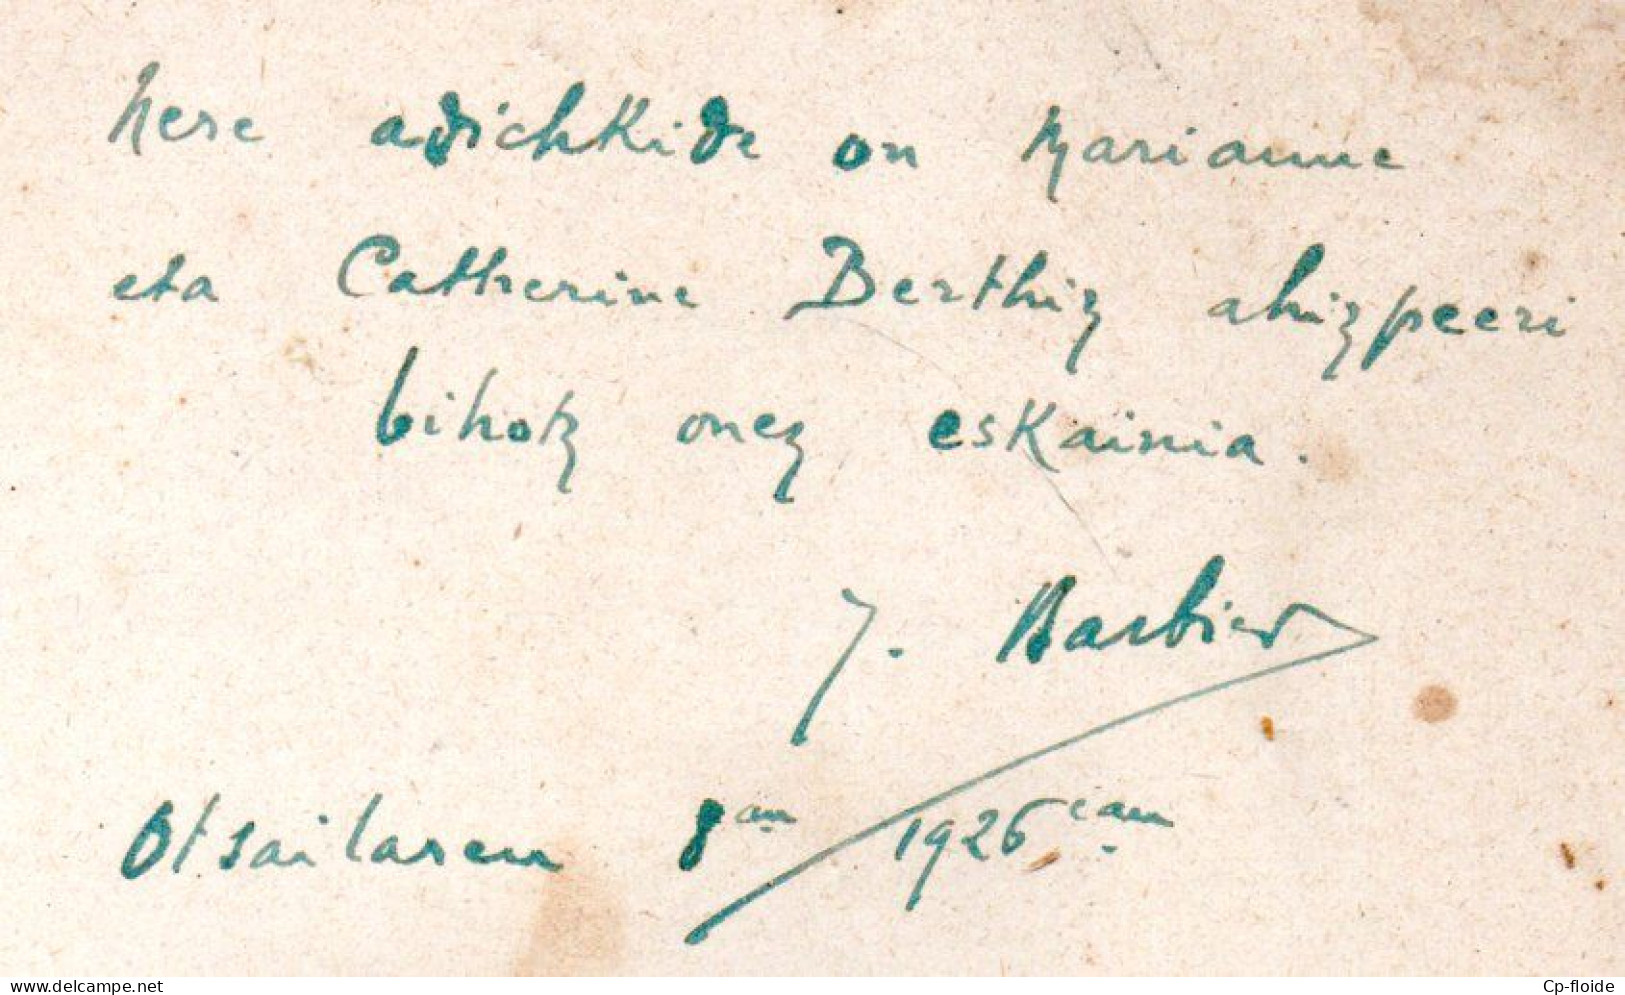 Nere adichkide on Marianne
eta Catherine Berthiz ahizpeeri
bihotz onez eskainia.
J. Barbier
Otsailaren 8an 1926ean
delcampe.net
Cp-floide